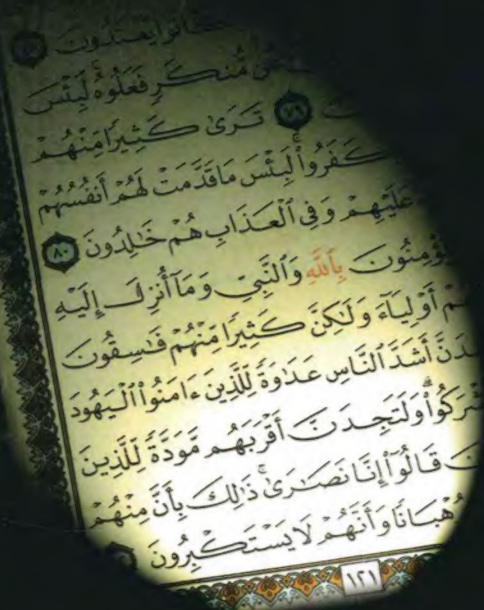 كَانُوا۟ يَعْتَدُونَ ٧٨
مُّنكَرٍ فَعَلُوهُ ۚ لَبِئْسَ
٧٩ تَرَىٰ كَثِيرًا مِّنْهُمْ
كَفَرُوا۟ ۚ لَبِئْسَ مَا قَدَّمَتْ لَهُمْ أَنفُسُهُمْ
عَلَيْهِمْ وَفِى ٱلْعَذَابِ هُمْ خَٰلِدُونَ ٨٠
بِٱللَّهِ وَٱلنَّبِىِّ وَمَآ أُنزِلَ إِلَيْهِ
أَوْلِيَآءَ وَلَٰكِنَّ كَثِيرًا مِّنْهُمْ فَٰسِقُونَ
أَشَدَّ ٱلنَّاسِ عَدَٰوَةً لِّلَّذِينَ ءَامَنُوا۟ ٱلْيَهُودَ
وَلَتَجِدَنَّ أَقْرَبَهُم مَّوَدَّةً لِّلَّذِينَ
قَالُوٓا۟ إِنَّا نَصَٰرَىٰ ۚ ذَٰلِكَ بِأَنَّ مِنْهُمْ
وَأَنَّهُمْ لَا يَسْتَكْبِرُونَ
١٢١